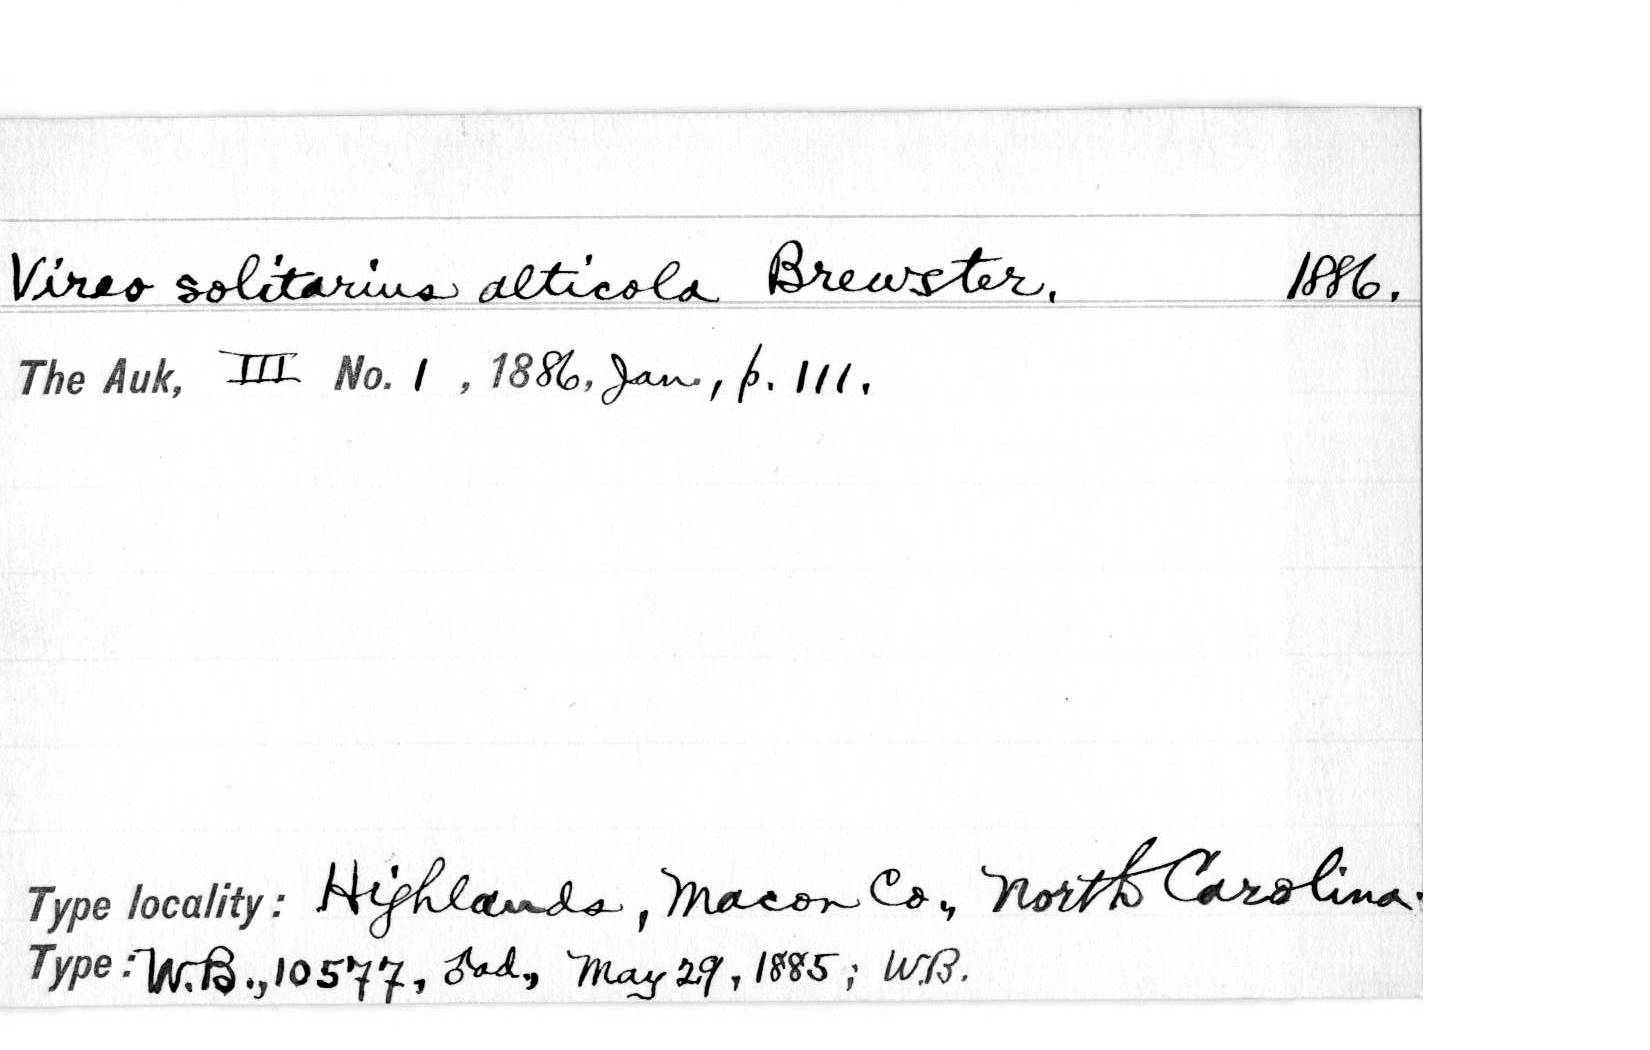 Vireo solitarius alticola Brewster. 1886.
The Auk, III No. 1, 1886, Jan., p. 111.
Type locality: Highlands, Macon Co., North Carolina.
Type: W.B., 10577, ♂ad., May 29, 1885; W.B.